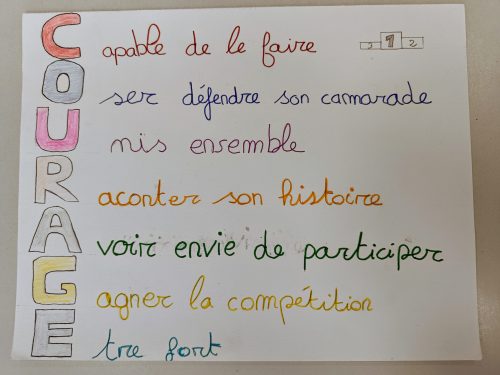 Capable de le faire
Oser défendre son camarade
Unis ensemble
Raconter son histoire
Avoir envie de participer
Gagner la compétition
Etre fort
2 1 2